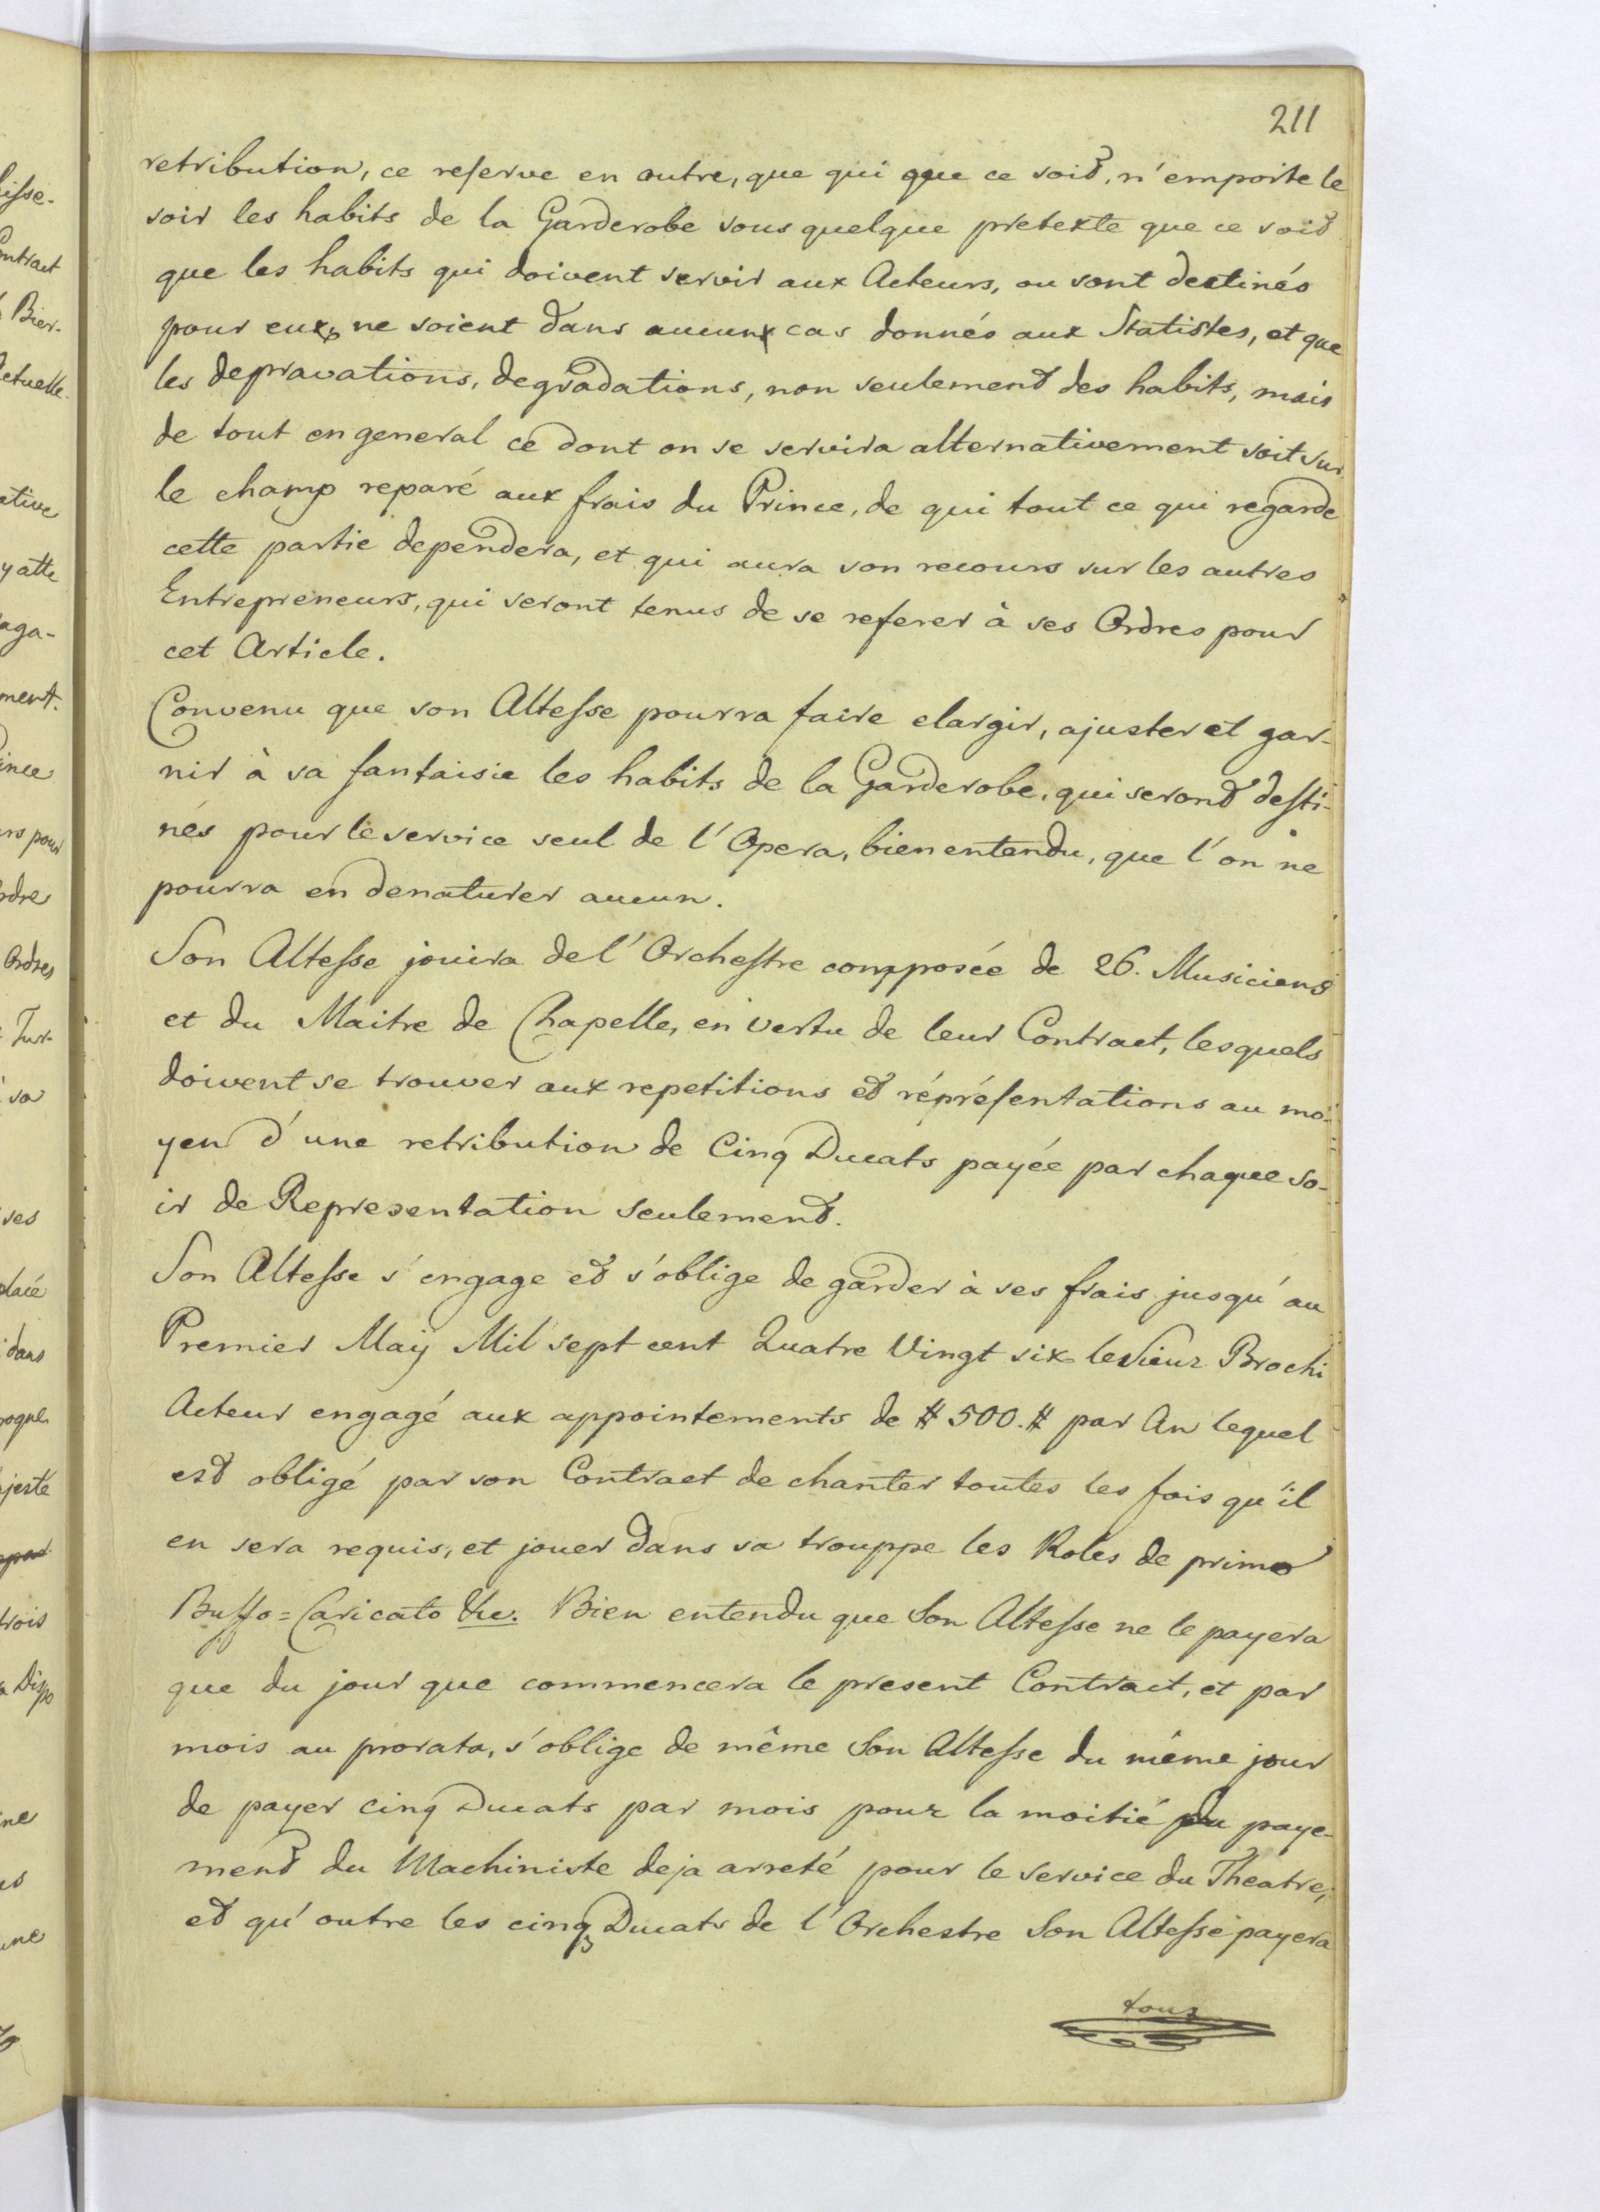 211
retribution, ce reserve en outre, que qui que ce soit, n'emporte le
soir les habits de la Garderobe sous quelque pretexte que ce soit
que les habits qui doivent servir aux Acteurs, ou sont destinés
pour eux, ne soient dans aucun cas donnés aux Statistes, et que
les depravations, degradations, non seulement des habits, mais
de tout en general ce dont on se servira alternativement soit sur
le champ reparé aux frais du Prince, de qui tout ce qui regarde
cette partie dependera, et qui aura son recours sur les autres
Entrepreneurs, qui seront tenus de se referer à ses Ordres pour
cet Article.
Convenu que son Altesse pourra faire elargir, ajuster et gar-
nir à sa fantaisie les habits de la Garderobe, qui seront desti-
nés pour le service seul de l'Opera, bien entendu, que l'on ne
pourra en denaturer aucun.
Son Altesse jouira de l'Orchestre composée de 26. Musiciens
et du Maitre de Chapelle, en vertu de leur Contract, lesquels
doivent se trouver aux repetitions et répréséntations au mo-
yen d'une retribution de Cinq Ducats payée par chaque so-
ir de Representation seulement.
Son Altesse s'engage et s'oblige de garder à ses frais jusqu'au
Premier Maÿ Mil sept cent Quatre Vingt six le Sieur Brochi
Acteur engagé aux appointements de # 500. # par An lequel
est obligé par son Contract de chanter toutes les fois qu'il
en sera requis, et jouer dans sa trouppe les Roles de primo
Buffo=Caricato &c. Bien entendu que Son Altesse ne le payera
que du jour que commencera le present Contract, et par
mois au prorata, s'oblige de même Son Altesse du même jour
de payer cinq Ducats par mois pour la moitié du paye-
ment du Machiniste deja arreté pour le service du Theatre,
et qu'outre les cinq Ducats de l'Orchestre Son Altesse payera
tous